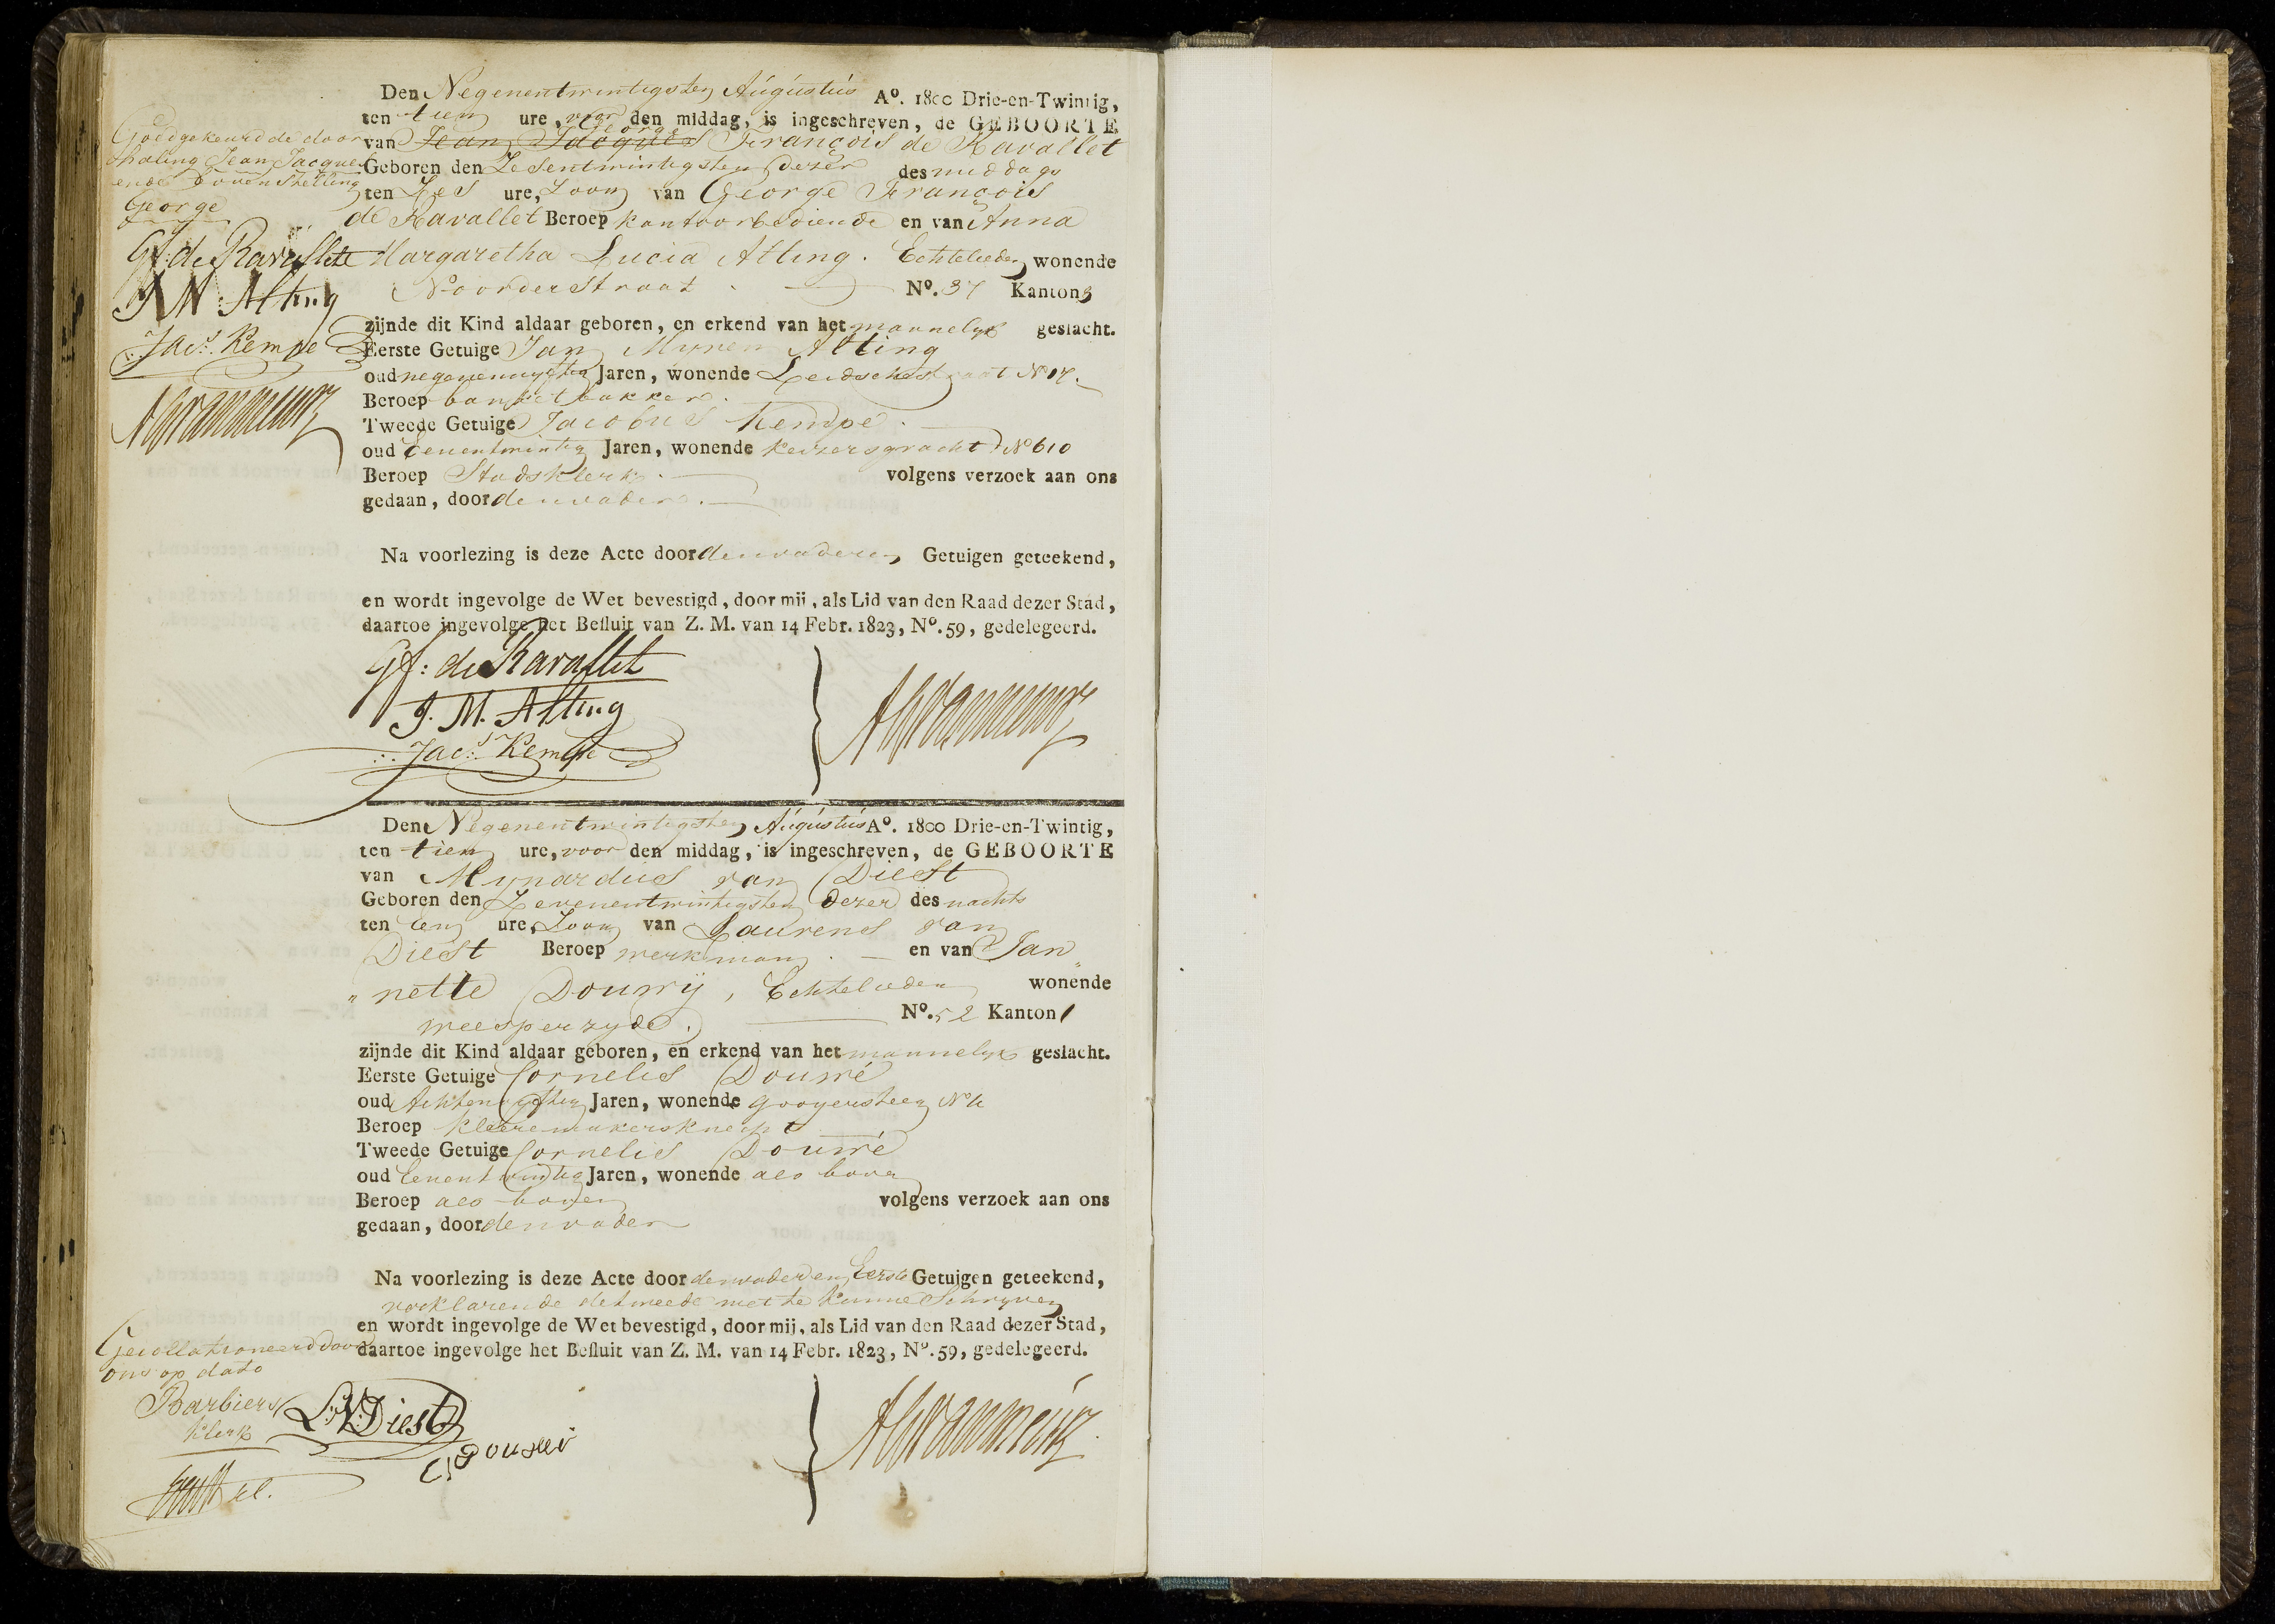 Den Negenentwintigsten Augústus Aº. 1800 Drie-en-Twintig,
ten tien ure, voor den middag, is ingeschreven, de GEBOORTE
George
van Jean Jacques François de Ravallet
Geboren den Zesentwintigsten dezer des middags
ten Zes ure, Zoon van George François
de Ravallet Beroep kantoorbediende en van Anna
Margaretha Lucia Alting. Echtelieden wonende
Noorderstraat Nº. 37 Kanton 3
zijnde dit Kind aldaar geboren, en erkend van het mannelyk geslacht.
Eerste Getuige Jan Alting
oud Jaren, wonende Leidschestraat Nº 17.
Beroep banketbakker.
Tweede Getuige Jacobus Kempe.
oud Eenentwintig Jaren, wonende Keizersgracht Nº 610
Beroep Stadsklerk. volgens verzoek aan ons
gedaan, door den vader.
Na voorlezing is deze Acte door den vader en Getuigen geteekend,
en wordt ingevolge de Wet bevestigd, door mij, als Lid van den Raad dezer Stad,
daartoe ingevolge het Besluit van Z. M. van 14 Febr. 1823, Nº. 59, gedelegeerd.
Gf: de Ravallet
J. M. Alting
Jacs. Kempe
Goedgekeurd de door
haling Jean Jacques
ende bovenstelling
George
Gf: de Ravallet
J M Alting
Jacs. Kempe
Den Negenentwintigsten Augústus Aº. 1800 Drie-en-Twintig,
ten tien ure, voor den middag, is ingeschreven, de GEBOORTE
van Mynardus van Diest
Geboren den Zevenentwintigsten dezer des nachts
ten Een ure, Zoon van Laurens van
Diest Beroep werkman. en van Jan„
„nette Douwij, Echtelieden wonende
weesperzyde. Nº. 52 Kanton 1
zijnde dit Kind aldaar geboren, en erkend van het mannelyk geslacht.
Eerste Getuige Cornelis Douwé
oud Jaren, wonende Gooyersteeg Nº
Beroep kleeremakersknegt
Tweede Getuige Cornelis Douwé
oud Eenentwintig Jaren, wonende als boven
Beroep als boven volgens verzoek aan ons
gedaan, door den vader
Na voorlezing is deze Acte door den vader en Eerste Getuigen geteekend,
verklarende de tweede niet te kunne Schryven
en wordt ingevolge de Wet bevestigd, door mij, als Lid van den Raad dezer Stad,
daartoe ingevolge het Besluit van Z. M. van 14 Febr. 1823, Nº. 59, gedelegeerd.
Gecollationeerd door
ons op dato
Barbiers
klerk
L: V: Diest